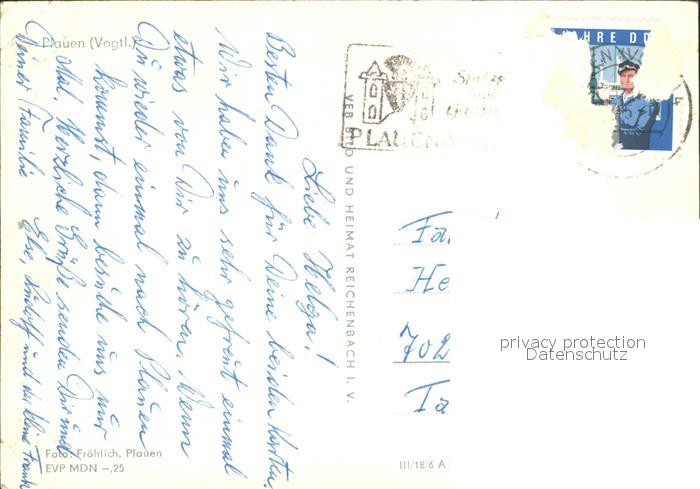 Plauen (Vogtl.)
Liebe Helga!
Besten Dank für Deine beiden Karten.
Wir haben uns sehr gefreut einmal
etwas von Dir zu hören. Wenn
Du wieder einmal nach Plauen
kommst, dann besuche uns mal
Herzliche Grüße senden Dir und
Deiner Familie Else, Rudolf und die kleine Frank
Foto: Fröhlich, Plauen
EVP MDN –,25
VEB BILD UND HEIMAT REICHENBACH I. V.
III/18/6 A
PLAUEN
JAHRE DD
Fa
He
702
Ta
privacy protection
Datenschutz